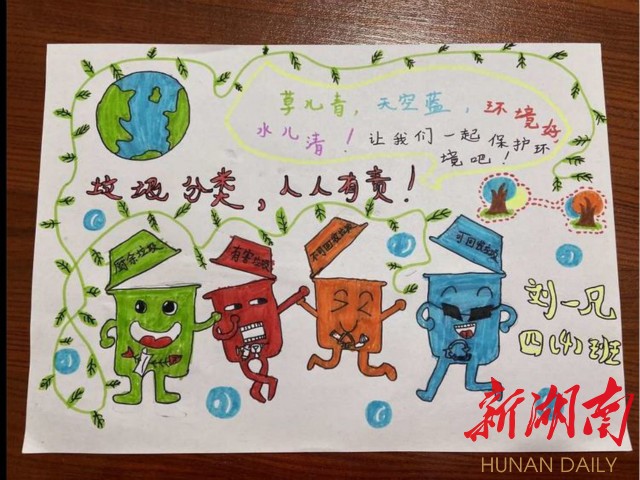 草儿青，天空蓝，环境好
水儿清！让我们一起保护环
境吧！
垃圾分类，人人有责！
厨余垃圾
有害垃圾
不可回收垃圾
可回收垃圾
刘一兄
四（4）班
新湖南
HUNAN DAILY